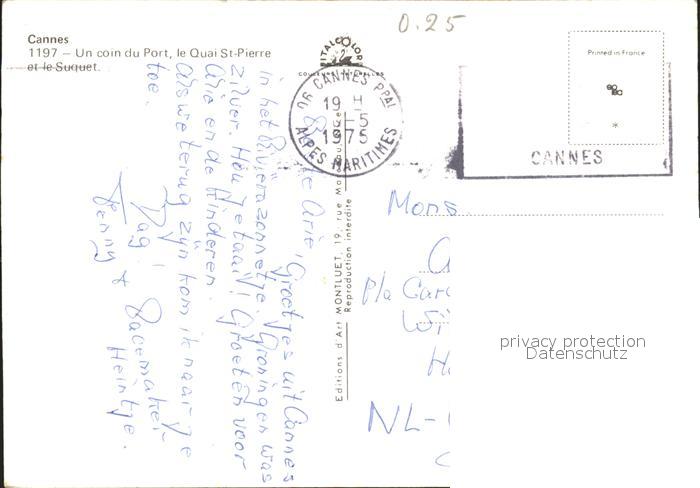 0.25
Cannes
1197 – Un coin du Port, le Quai St-Pierre
et le Suquet.
Printed in France
06 CANNES PPAL
19 H
-5
1975
ALPES MARITIMES
CANNES
Editions d'Art MONTLUET, 19, rue
Reproduction interdite
Arie, Groetjes uit Cannes
in het Rivièrazonnetje. Groningen was
zilver. Hou je taai! Groeten voor
Arie en de Kinderen.
Als we terug zijn kom ik naar je
toe.
Dag!
Jenny & Pacemaker
Heintje.
Mons
P/a
NL-
privacy protection
Datenschutz